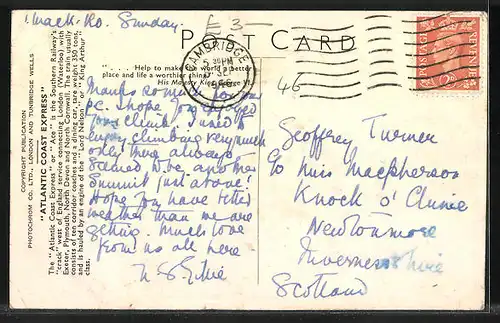 Sunday.
£ 3
POST CARD
... Help to make the world a better
place and life a worthier thing.
His Majesty King George VI.
CAMBRIDGE
5 30 PM
SEP
1946
POSTAGE REVENUE
46
COPYRIGHT PUBLICATION
PHOTOCHROM CO. LTD., LONDON AND TUNBRIDGE WELLS
"ATLANTIC COAST EXPRESS"
The "Atlantic Coast Express" or "Ace" is the Southern Railway's
"crack" west of England service connecting London (Waterloo) with
Exeter, Plymouth, North Devon and North Cornwall. The train usually
consists of ten corridor coaches and a dining car, total weight 350 tons
and is hauled by an engine of the "Lord Nelson" or "King Arthur"
class.
Thanks so much for your
p.c. I hope you enjoyed
your climb. I used to
enjoy climbing very much
only there always
seemed to be another
summit just above!
Hope you have better
weather than we are
getting much love
from us all here
Geoffrey Turner
c/o Miss Macpherson
Knock o' Clunie
Newtonmore
Inverness shire
Scotland